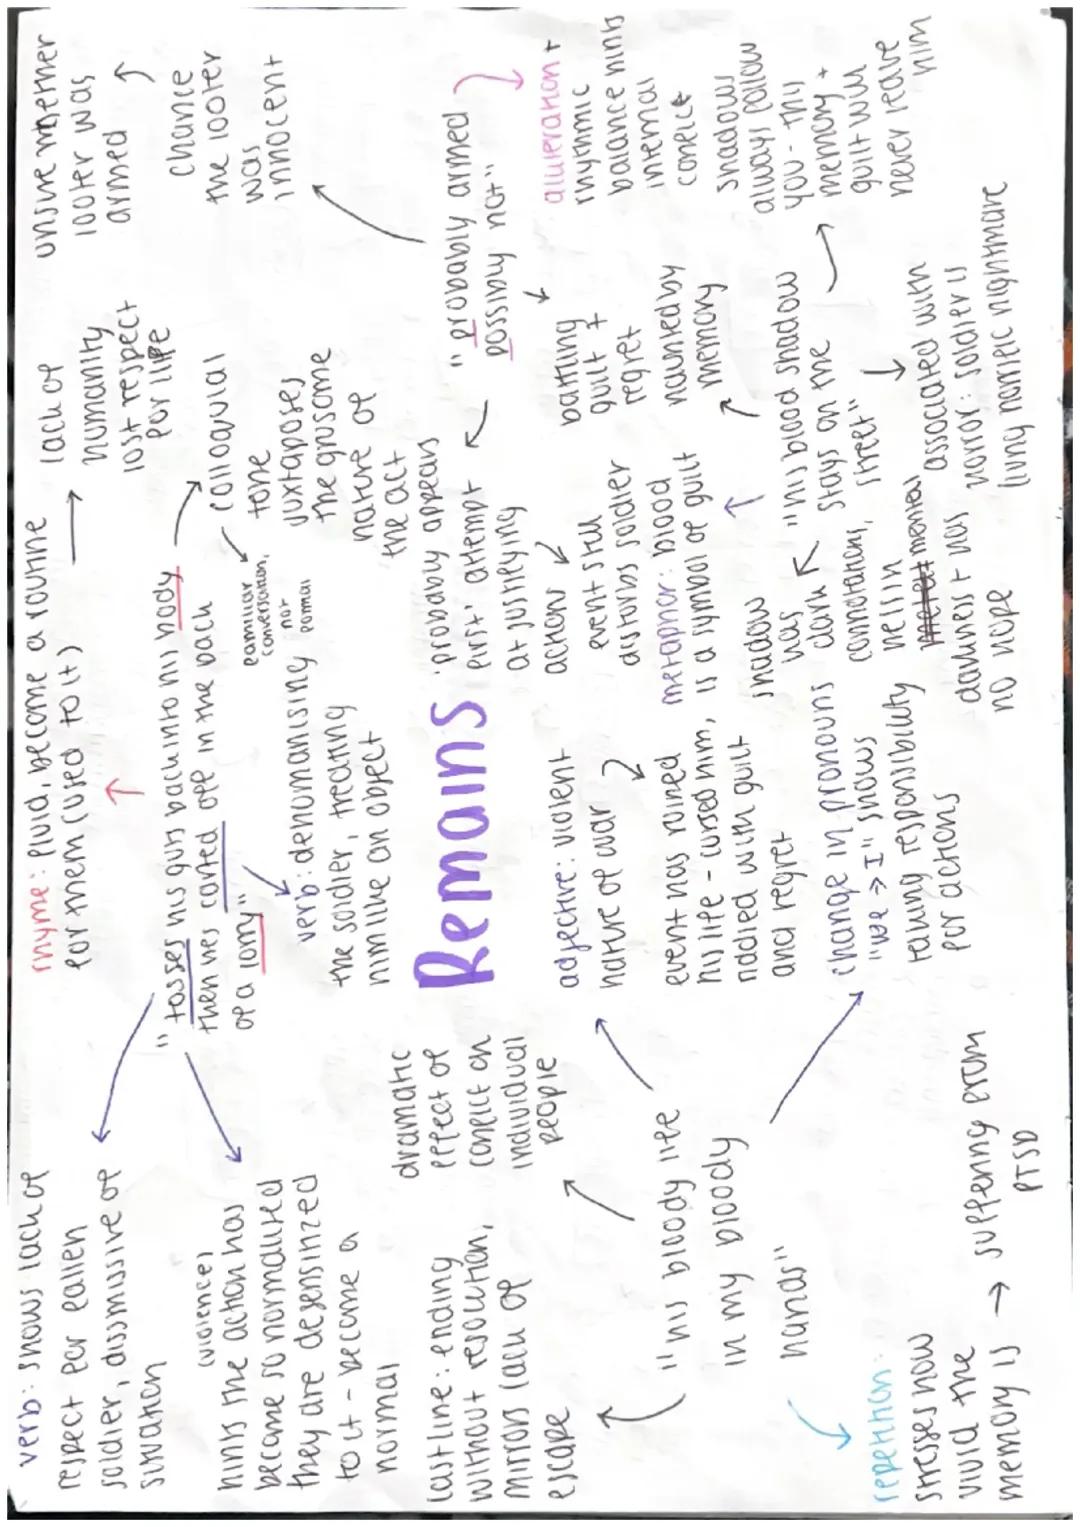 verb: shows lack of
respect for fallen
soldier, dismissive of
situation
(violence)
hints the action has
become so normalised
they are desensitized
to it - become a
normal
rhyme: fluid, become a routine
for them (used to it)
lack of
humanity
lost respect
for life
"tosses his guts back into his body
then he's carted off in the back
of a lorry"
colloquial
tone
juxtaposes
the grusome
nature of
the act
familiar
conversation,
not
formal
verb: dehumanising
the soldier, treating
him like an object
unsure whether
looter was
armed
chance
the looter
was
innocent
Remains
"probably armed
possibly not"
'probably appears
first' attempt
at justifying
actions
event still
disturbs soldier
battling
guilt +
regret
alliteration +
rhythmic
balance hints
internal
conflict
last line: ending
without resolution,
mirrors lack of
escape
dramatic
effect of
conflict on
individual
people
"his bloody life
in my bloody
hands"
adjective: violent
nature of war
event has ruined
his life - cursed him,
riddled with guilt
and regret
change in pronouns
"we → I" shows
taking responsibility
for actions
repetition:
stresses how
vivid the
memory is → suffering from
PTSD
metaphor: blood
is a symbol of guilt
haunted by
memory
"his blood shadow
stays on the
street"
shadows
always follow
you - thy
memory +
guilt will
never leave
him
shadow
has
dark
connotations,
he'll in
mental
darkness + has
no hope
associated with
horror: soldier is
living horrific nightmare